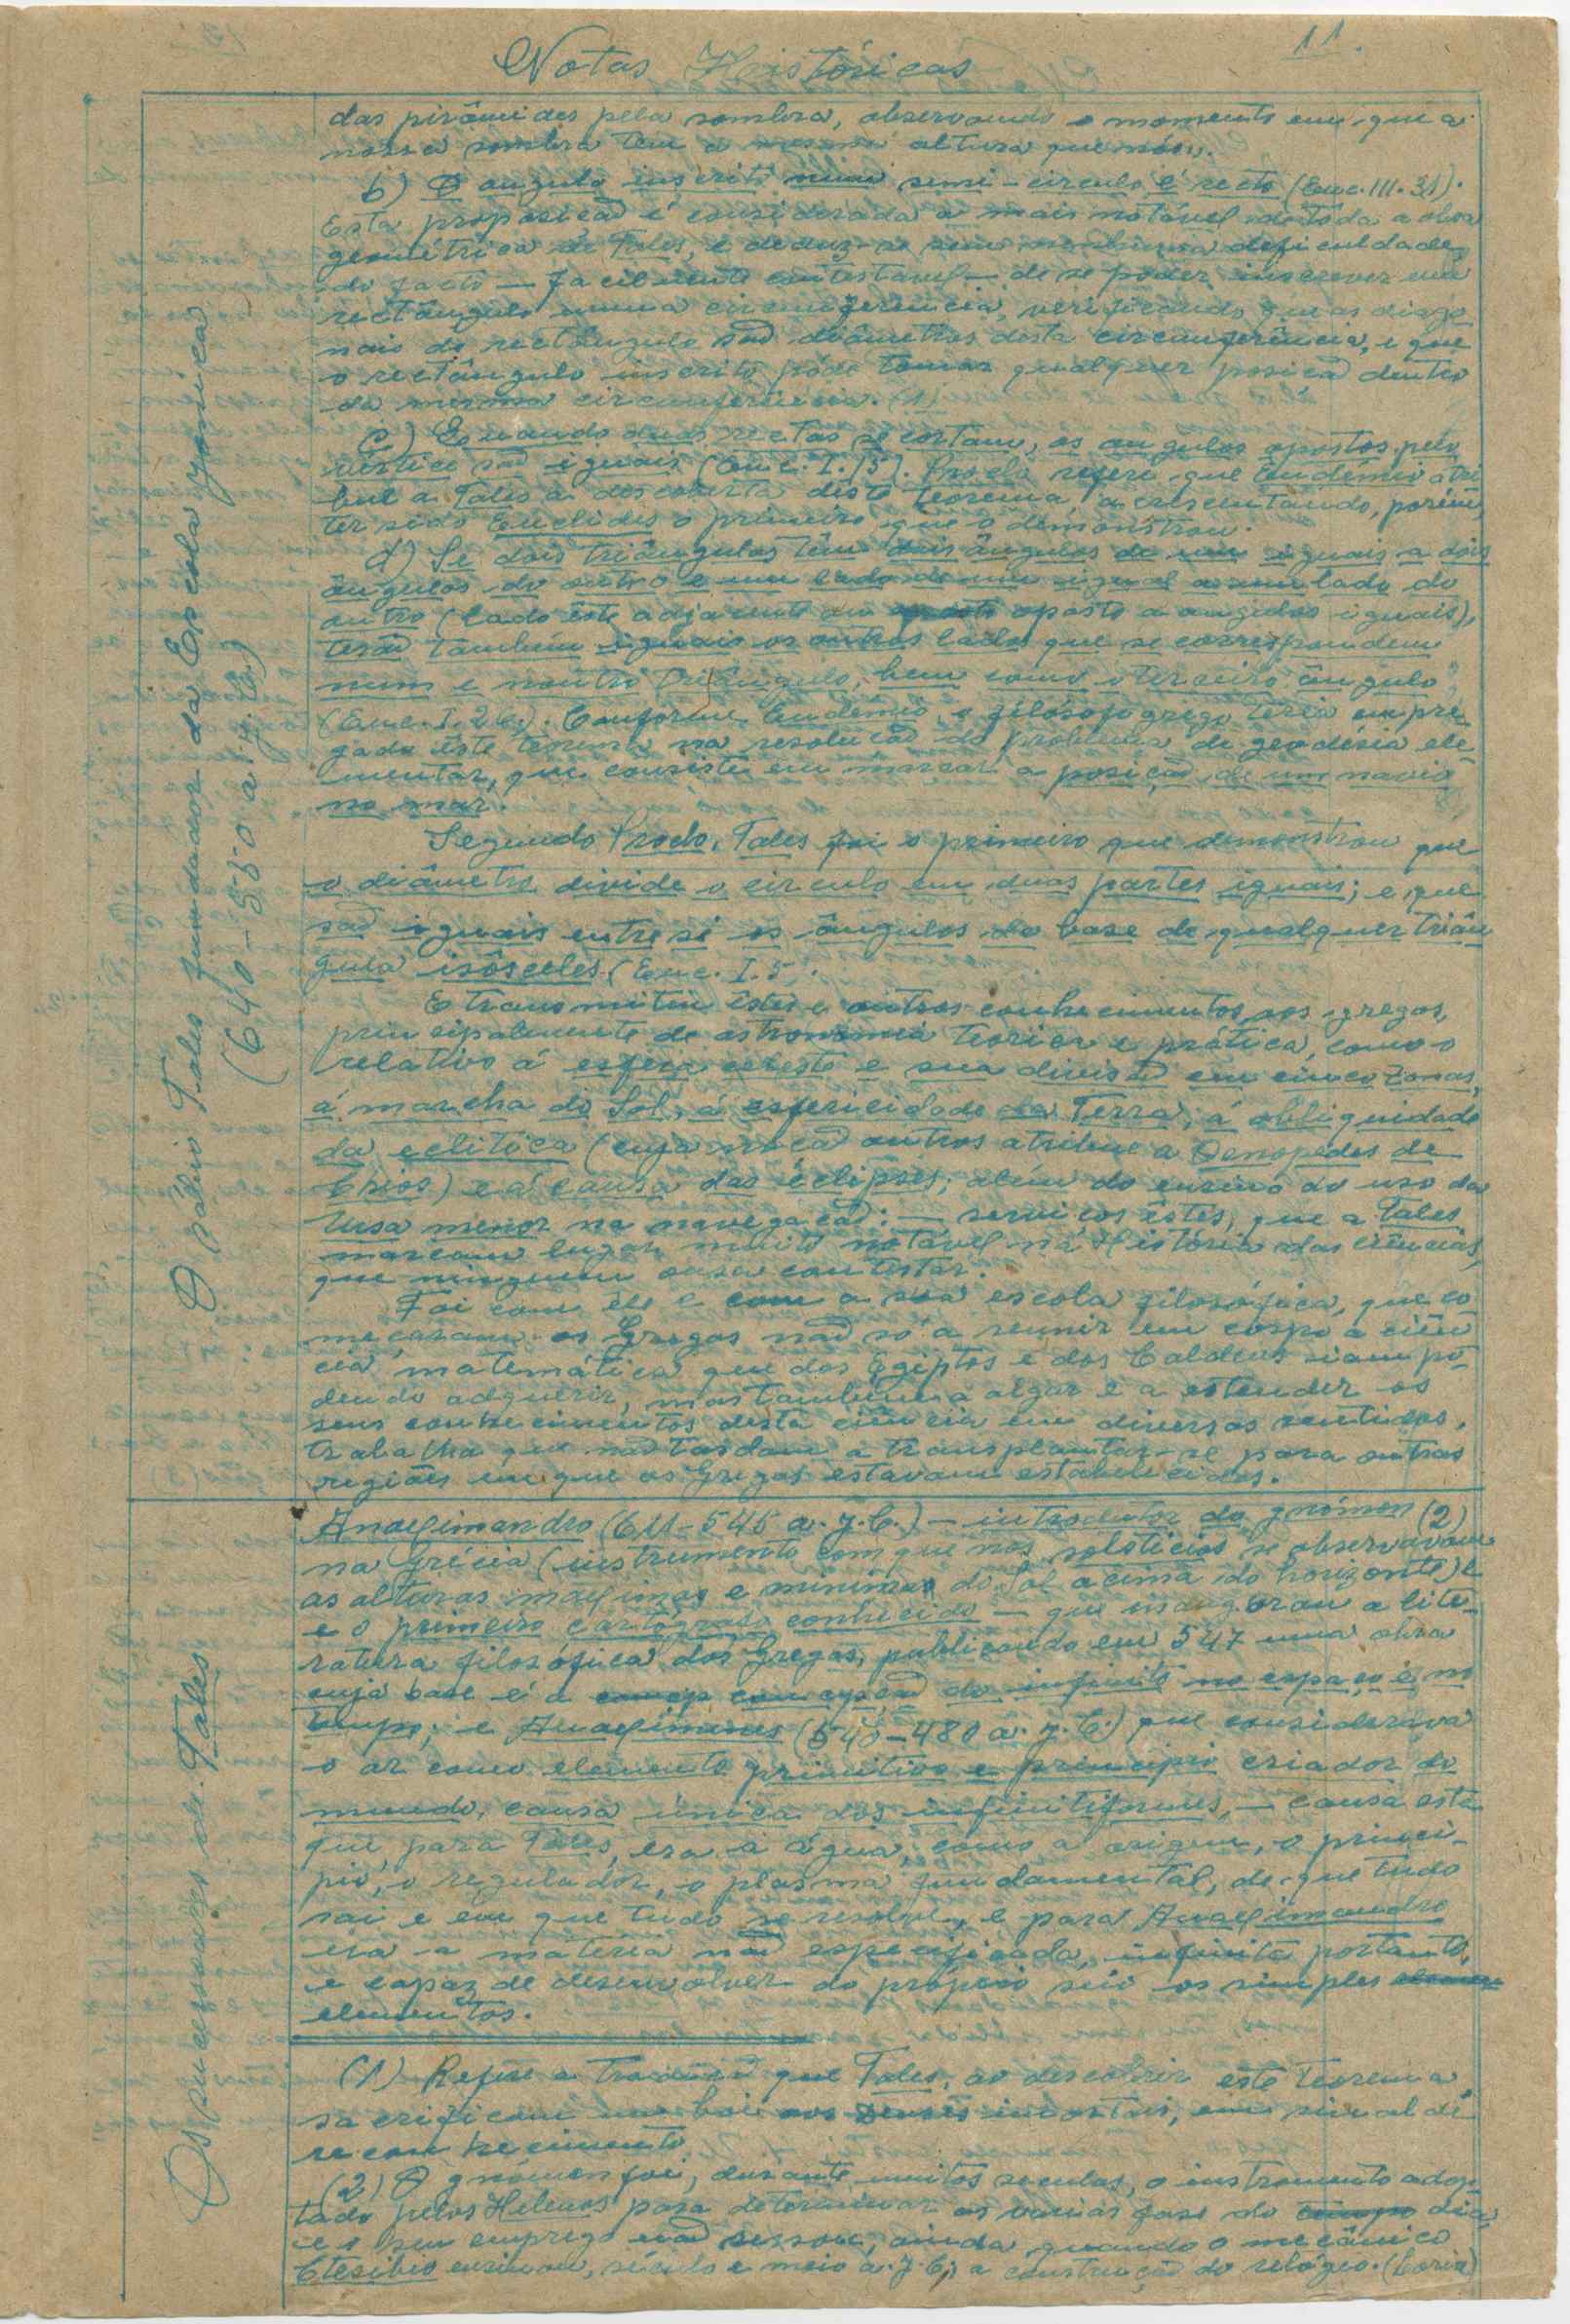 Notas Históricas
11.
das pirâmides pela sombra, observando o momento em que a
nossa sombra tem a mesma altura que nós".
b) O angulo inscrito num semi-circulo é recto (Euc. III. 31).
Esta proposição é considerada a mais notável de tôda a obra
geométrica de Tales, e deduz-se sem nenhuma deficuldade,
do facto — facilmente contestavel — de se poder inscrever um
rectângulo numa circumferência, verificando que as diago-
nais do rectângulo são diâmetros desta circunferência, e que
o rectângulo inscrito póde tomar qualquer posição dentro
da mesma circunferência. (1)
c) Quando duas rectas se cortam, os angulos opostos pelo
vértice são iguais (Euc. I. 15). Proclo refere que Eudémio atri-
bue a Tales a descoberta deste teorema, acrescentando, porém,
ter sido Euclides o primeiro que o demonstrou.
d) Se dois triângulos têm dois ângulos de um iguais a dois
ângulos do outro e um lado de um igual a um lado do
outro (lado êste adjacente ou oposto a angulos iguais),
terão também iguais os outros lados que se correspondem
num e noutro triângulo, bem como o terceiro ângulo",
(Euc. I. 26). Conforme Eudémio, o filósofo grego teria empre-
gado êste teorema na resolução do problema de geodésia ele-
mentar, que consiste em marcar a posição de um navio
no mar.
Segundo Proclo, Tales foi o primeiro que demonstrou que
o diâmetro divide o circulo em duas partes iguais; e que
são iguais entre si os ângulos da base de qualquer triân-
gulo isósceles (Euc. I. 5.
E transmitiu êstes e outros conhecimentos aos gregos,
principalmente de astronomia teorica e prática, como o
relativo á esfera celeste e sua divisão em cinco zonas,
á marcha do Sol, á esfericidade da Terra, á obliquidade
da eclitica (cuja noção outros atribue a Oenopedes de
Chios) e á causa das éclipses; além do ensino do uso da
Ursa menor na navegação: — serviços êstes, que a Tales
marcam lugar muito notável na História das Ciências,
que ninguem ousa contestar.
Foi com êle e com a sua escola filosófica, que co-
meçaram os Gregos não só a reunir em corpo a ciên-
cia matemática que dos Egiptos e dos Caldeus iam po-
dendo adquirir, mas tambem a alçar e a estender os
seus conhecimentos desta ciência em diversos sentidos,
trabalha que não tardam a transplantar-se para outras
regiões em que os Gregos estavam estabelecidos.
O sábio Tales fundador da Escola Jonica
(640-550 a. J. C.)
Anaximandro (611-545 a. J. C.) — introdutor do gnómon (2)
na Grécia (instrumento com que nos solsticios se observavam
as alturas maximas e minimas do Sol acima do horizonte) e
e o primeiro cartógrafo conhecido — que inaugurou a lite-
ratura filosófica dos Gregos, publicando em 547 uma obra
cuja base é a concepção do infinito no espaço e no
tempo; e Anaximenes (540-480 a. J. C.) que considerava
o ar como elemento primitivo e principio criador do
mundo, causa única dos infinitiformes, — causa esta
que, para Tales, era a água, como a origem, o princi-
pio, o regulador, o plasma fundamental, de que tudo
sai e em que tudo se resolve, e para Anaximandro
era a matéria não especificada, infinita portanto,
e capaz de desenvolver do próprio seio os simples
elementos.
Os sucessores de Tales
(1) Refere a tradução que Tales, ao descobrir este teorema
sacrificam um boi aos Deuses imortais, em sinal de
reconhecimento
(2) O gnómon foi, durante muitos seculos, o instrumento adop-
tado pelos Helenos para determinar as varias fase do dia,
e o seu emprego não cessou, ainda quando o mecânico
Ctesibio ensinou, século e meio a. J. C., a construção do relógio. (Loria)